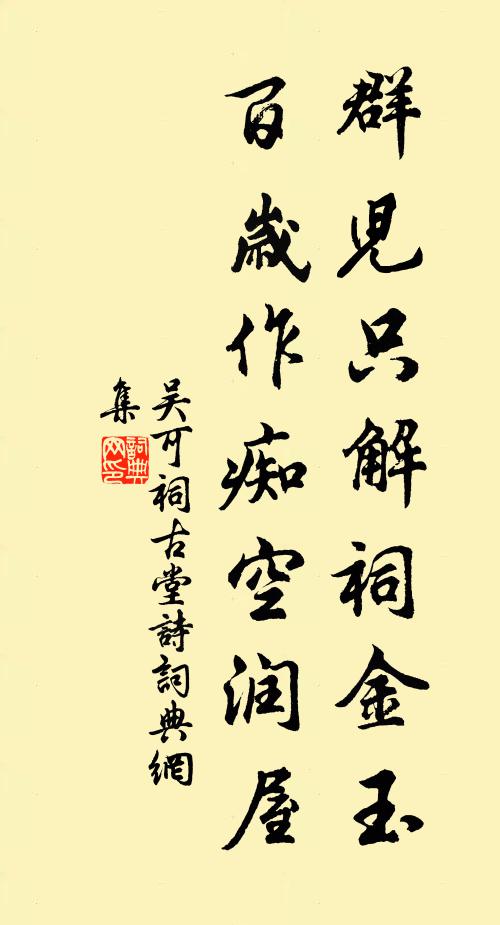 群児只解祠金玉
百歲作痴空润屋
吴可祠古堂詩詞典網
集
詞典
网印